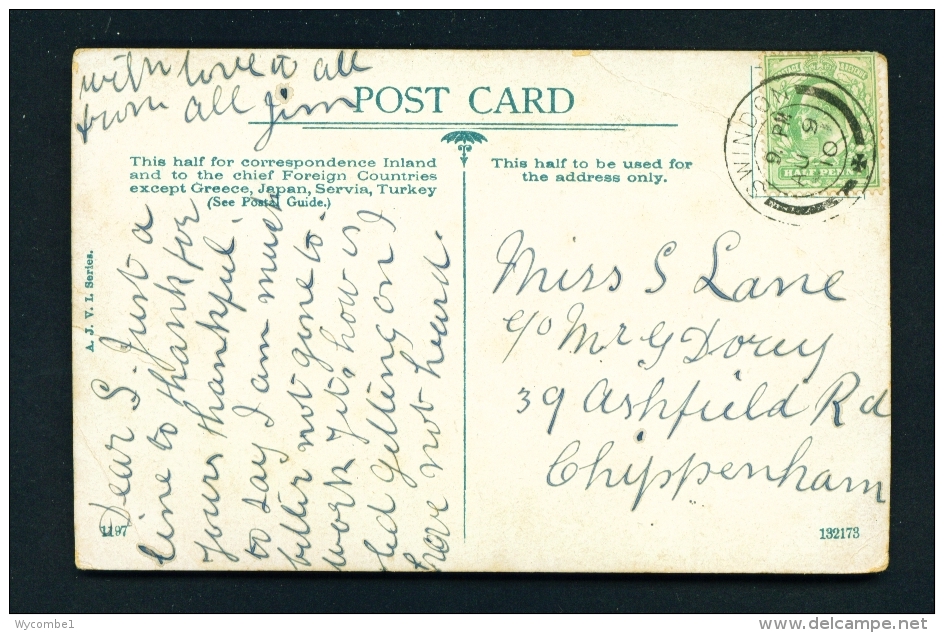 with love to all
from all Jim
POST CARD
This half for correspondence Inland
and to the chief Foreign Countries
except Greece, Japan, Servia, Turkey
(See Postal Guide.)
This half to be used for
the address only.
SWINDON
9 PM
JU 9
10
HALF PENNY
A. J. V. I. Series.
Dear S. Just a
line to thank for
yours thankful
to say I am much
better not gone to
work yet, how is
Ted getting on I
have not heard
Miss S Lane
c/o Mr G Dorey
39 Ashfield Rd
Chippenham
1197
132173
Wycombe1
www.delcampe.net